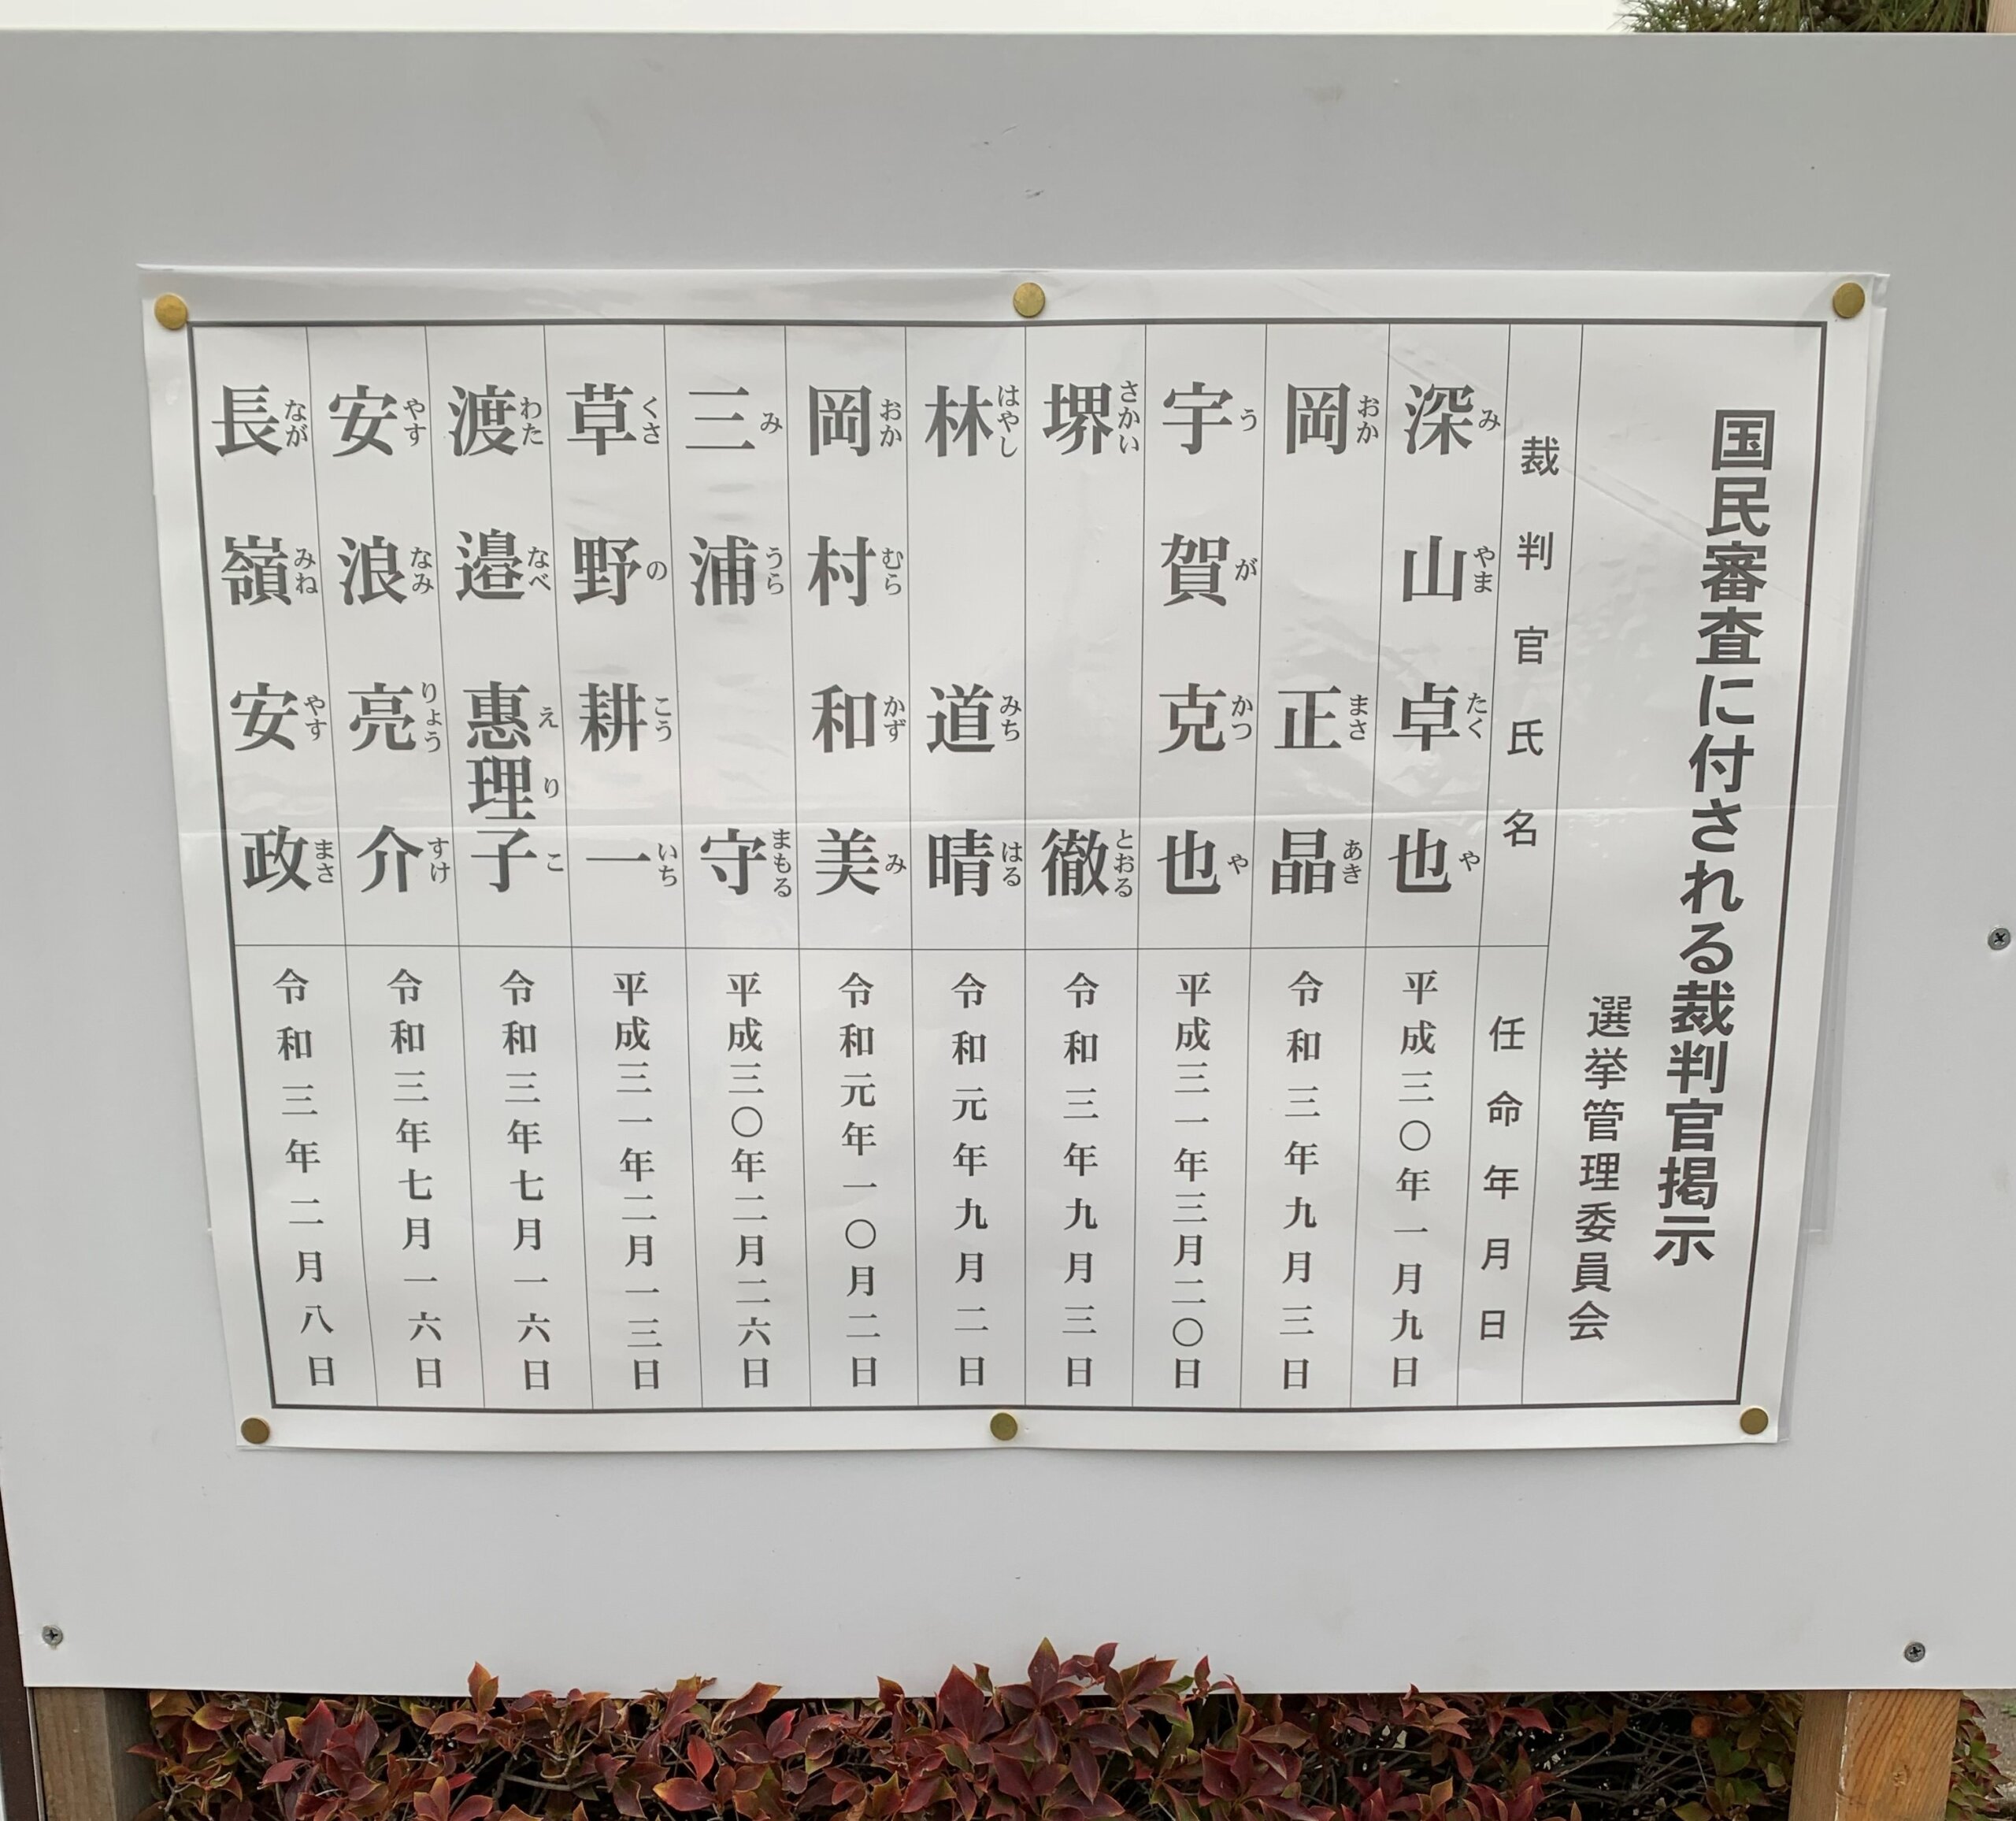 国民審査に付される裁判官掲示
選挙管理委員会
裁判官氏名 任命年月日
深山卓也 みやまたくや 平成三〇年一月九日
岡正晶 おかまさあき 令和三年九月三日
宇賀克也 うがかつや 平成三一年三月二〇日
堺徹 さかいとおる 令和三年九月三日
林道晴 はやしみちはる 令和元年九月二日
岡村和美 おかむらかずみ 令和元年一〇月二日
三浦守 みうらまもる 平成三〇年二月二六日
草野耕一 くさのこういち 平成三一年二月一三日
渡邉惠理子 わたなべえりこ 令和三年七月一六日
安浪亮介 やすなみりょうすけ 令和三年七月一六日
長嶺安政 ながみねやすまさ 令和三年二月八日